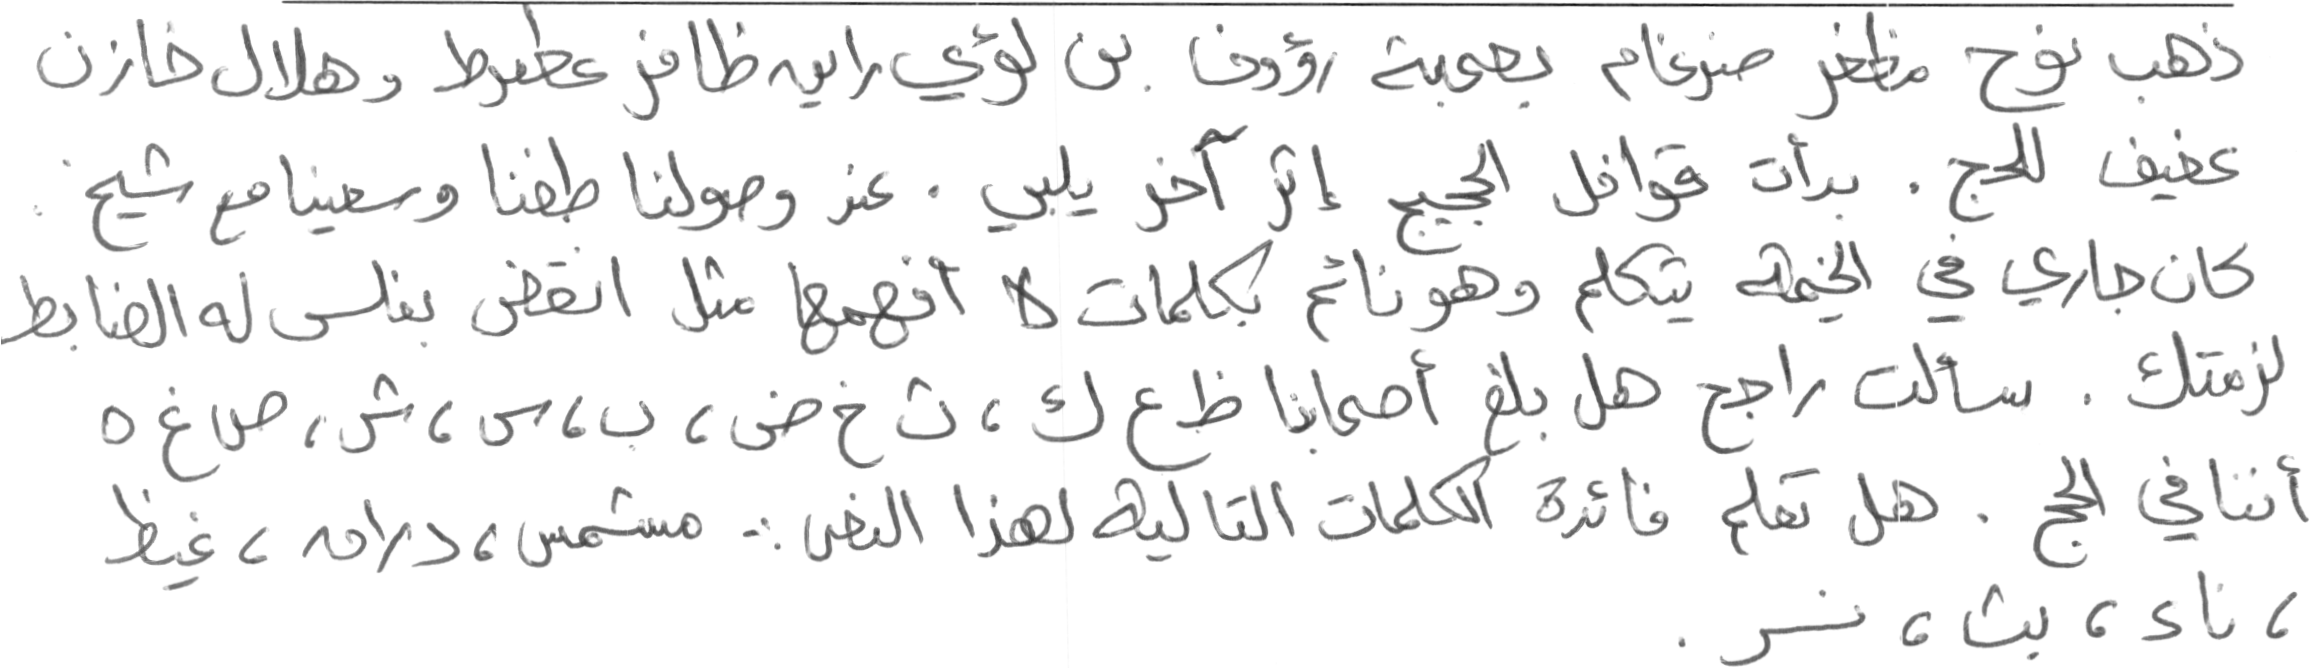 ذهب نوح مظفر ضرغام بصحبة رؤوف بن لؤي رايه ظافر عطوط وهلال خازن
عفيف للحج . بدأت قوافل الحجيج إثر آخر يلبي . عند وصولنا طفنا وسعينا مع شيخ .
كان جاري في الخيمة يتكلم وهو نائم بكلمات لا أفهمها مثل انقض بفلس له الضابط
لزمتك . سألت راجح هل بلغ أصحابنا ظ ع ك ، ث خ ض ، ب ، س ، ش ، ص غ ه
أننا في الحج . هل تعلم فائدة الكلمات التالية لهذا النص :- مشمس ، دراق ، غيظ
، ناء ، بث ، نسر .